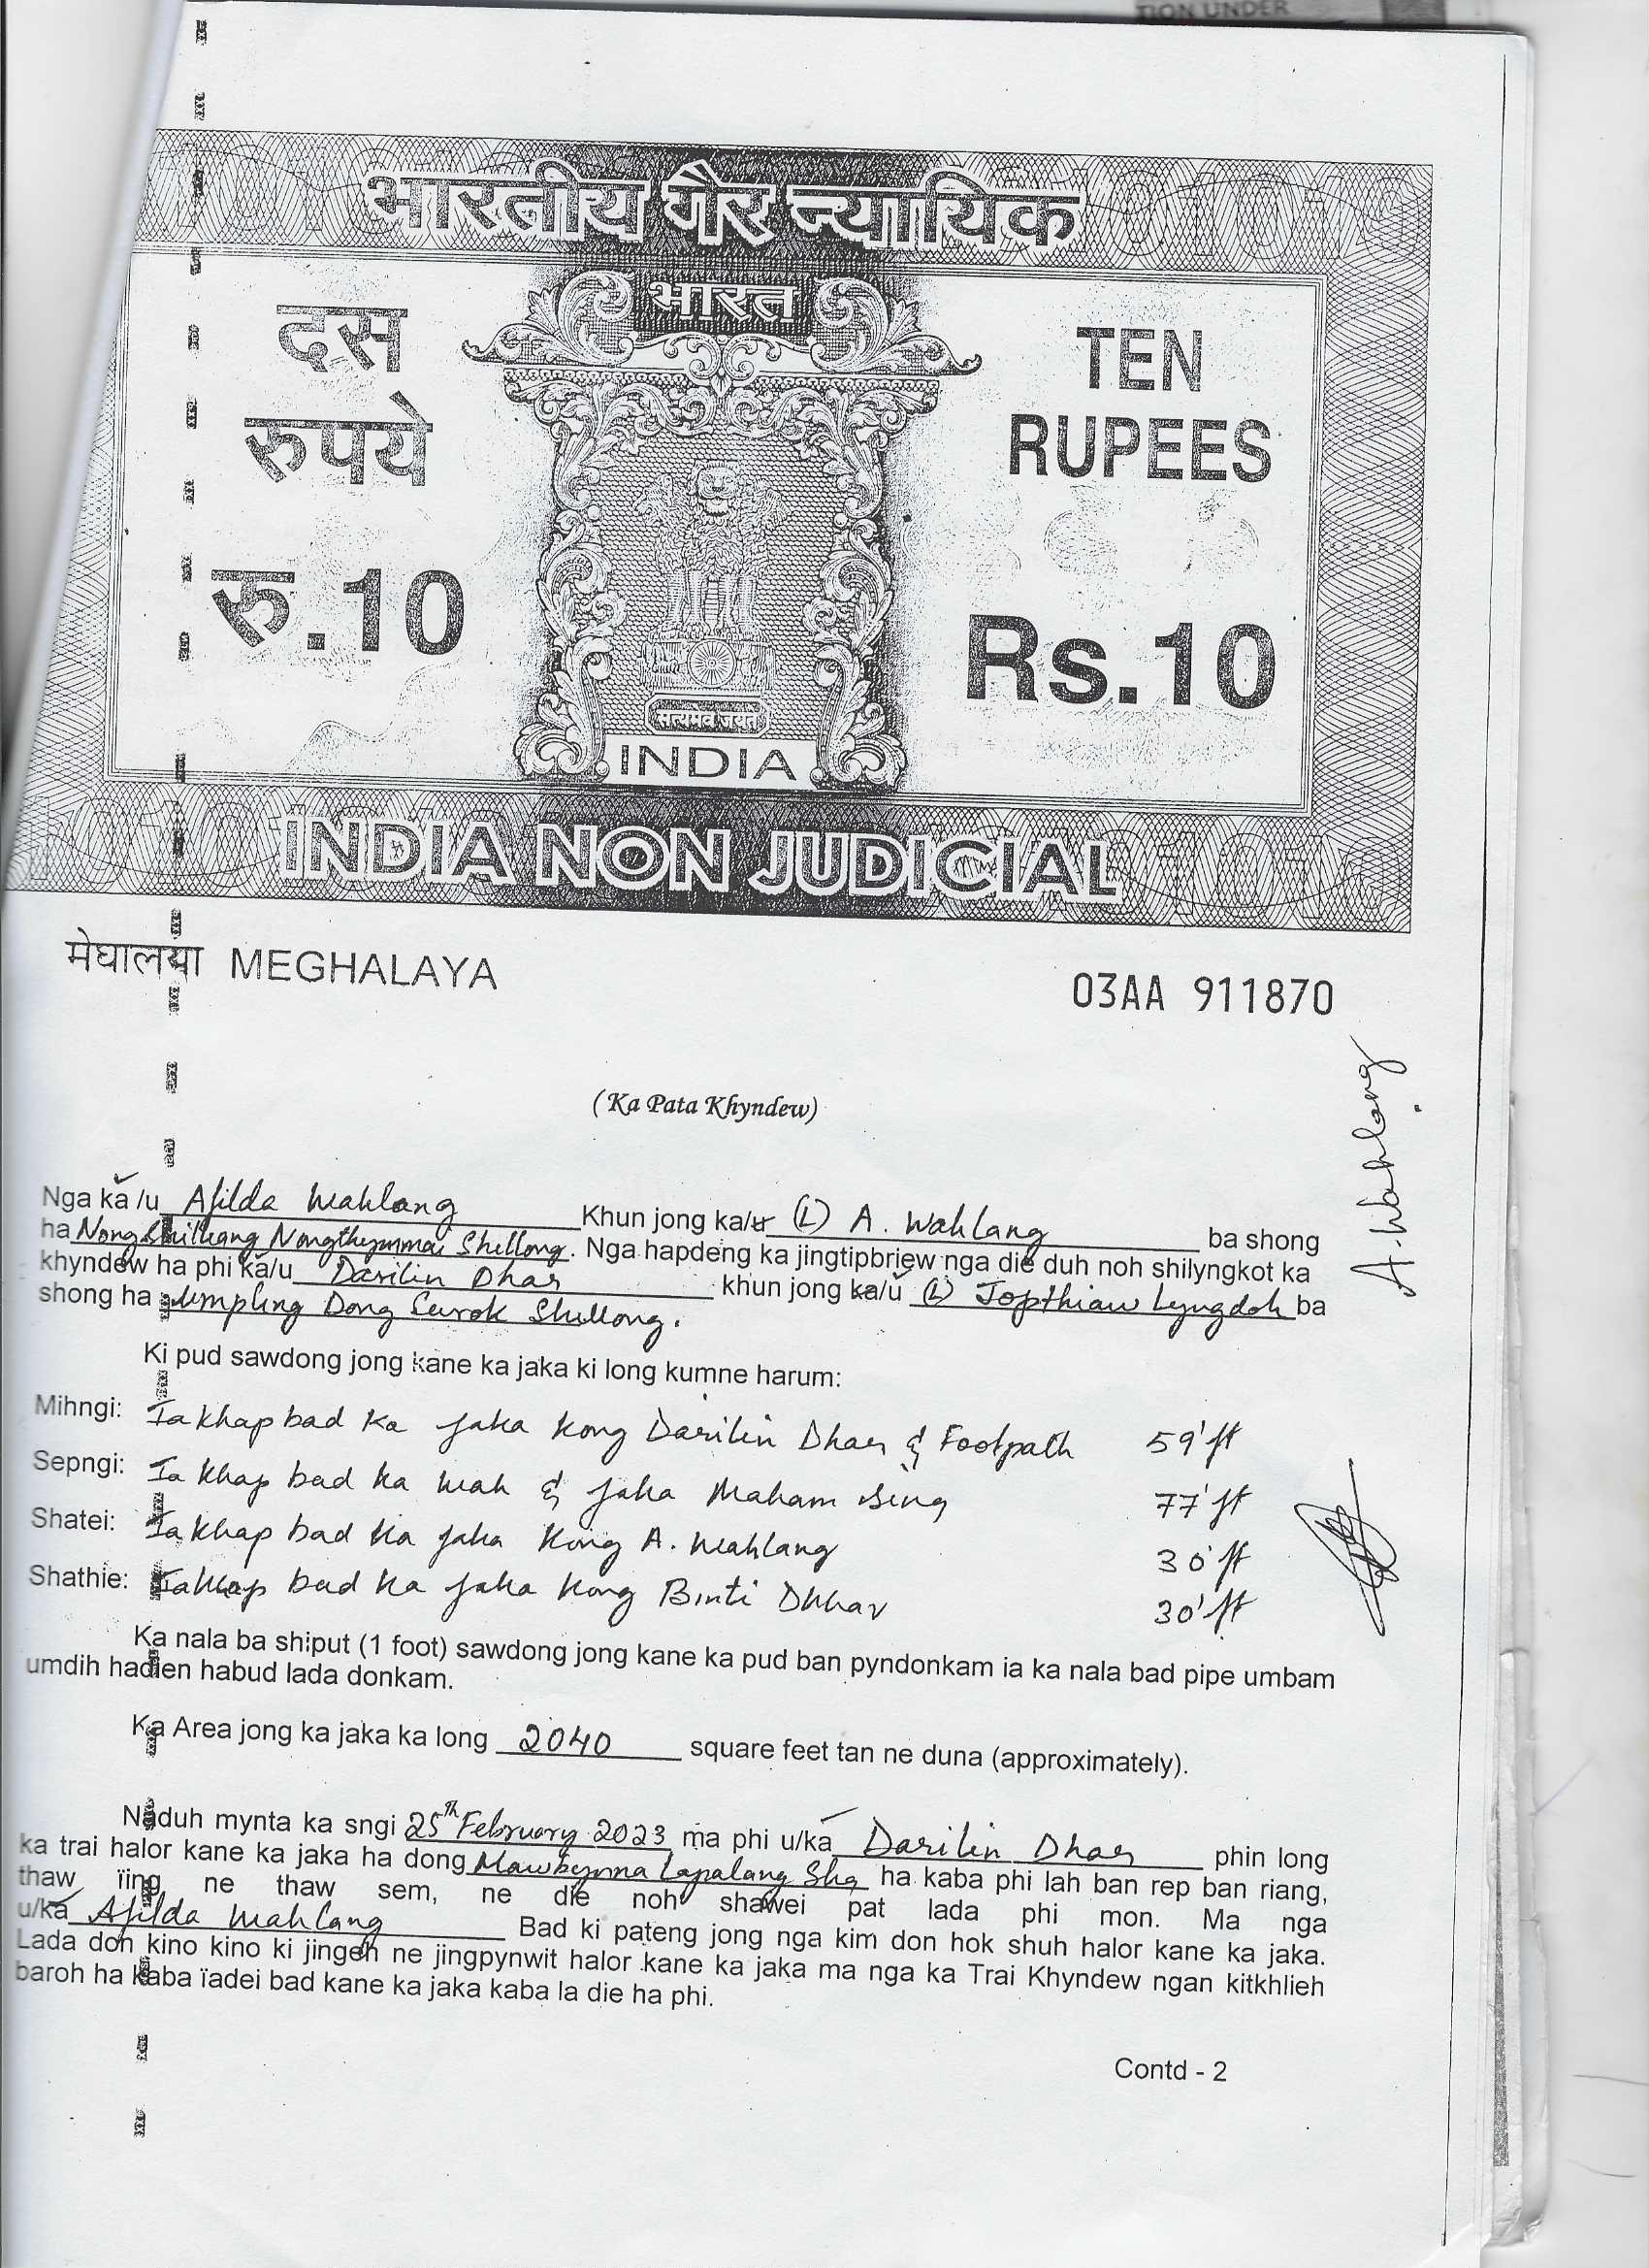 TION UNDER
भारतीय गैर न्यायिक
भारत
दस
रुपये
रु.10
TEN
RUPEES
Rs.10
सत्यमेव जयते
INDIA
INDIA NON JUDICIAL
मेघालया MEGHALAYA
03AA 911870
(Ka Pata Khyndew)
A. Wahlang
Nga ka /u Afilda Wahlang Khun jong ka/u (L) A. Wahlang ba shong
ha Nongshilliang Nongthymmai Shillong. Nga hapdeng ka jingtipbriew nga die duh noh shilyngkot ka
khyndew ha phi ka/u Darilin Dhar khun jong ka/u (L) Jopthiaw Lyngdoh ba
shong ha Umpling Dong Surok Shillong.
Ki pud sawdong jong kane ka jaka ki long kumne harum:
Mihngi: Ia khap bad ka jaka kong Darilin Dhar & Footpath 59' ft
Sepngi: Ia khap bad ka wah & jaka Maham Sing 77' ft
Shatei: Ia khap bad ka jaka kong A. Wahlang 30' ft
Shathie: Ia khap bad ka jaka kong Binti Dkhar 30' ft
Ka nala ba shiput (1 foot) sawdong jong kane ka pud ban pyndonkam ia ka nala bad pipe umbam
umdih hadien habud lada donkam.
Ka Area jong ka jaka ka long 2040 square feet tan ne duna (approximately).
Naduh mynta ka sngi 25th February 2023 ma phi u/ka Darilin Dhar phin long
ka trai halor kane ka jaka ha dong Mawkynna Lapalang Shg ha kaba phi lah ban rep ban riang,
thaw ïing ne thaw sem, ne die noh shawei pat lada phi mon. Ma nga
u/ka Afilda Wahlang Bad ki pateng jong nga kim don hok shuh halor kane ka jaka.
Lada don kino kino ki jingeh ne jingpynwit halor kane ka jaka ma nga ka Trai Khyndew ngan kitkhlieh
baroh ha kaba ïadei bad kane ka jaka kaba la die ha phi.
Contd - 2